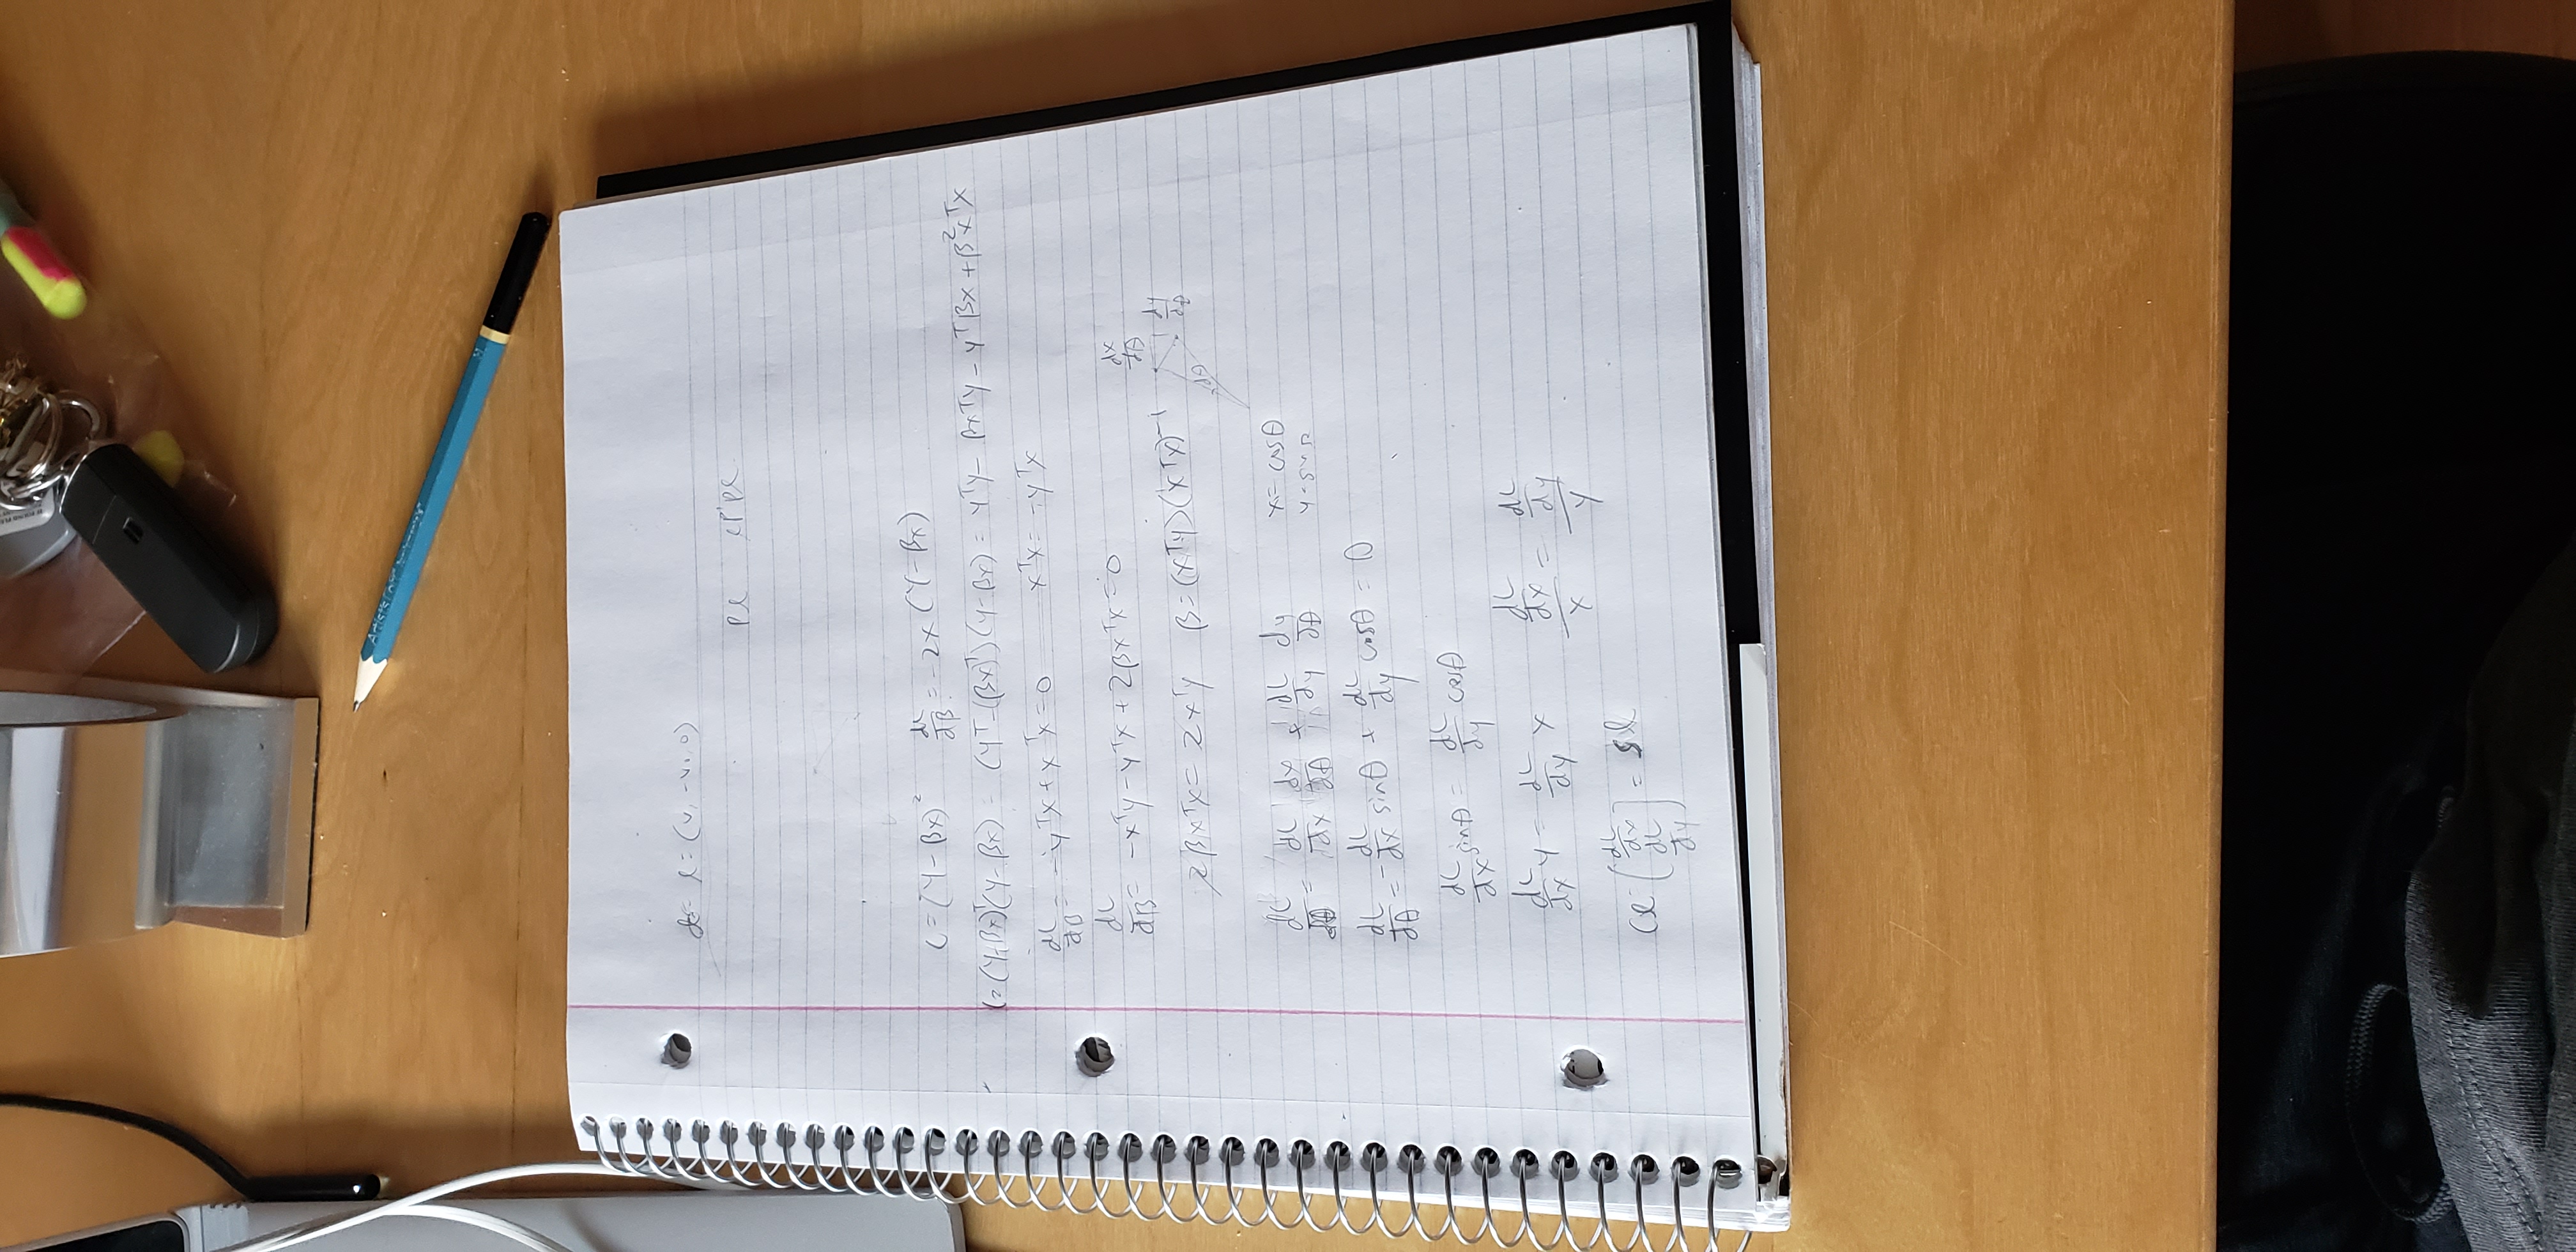 l = (v, -v, 0)
Pl lP'Pl
L = (Y - βx)² dL/dβ = -2x (Y - βx)
L = (Y - βx)ᵀ(y - βx) = (yᵀ - (βx)ᵀ)(y - βx) = yᵀy - βxᵀy - yᵀβx + β²xᵀx
dL/dβ = -yᵀx + xᵀx = 0 xᵀx = -yᵀx
dL/dβ = -xᵀy - yᵀx + 2βxᵀx = 0
2βxᵀx = 2xᵀy β = (xᵀy)(xᵀx)⁻¹
dx/dθ
dy/dθ
dθ
dL/dθ = dL/dx dx/dθ + dL/dy dy/dθ x = cosθ
y = sinθ
dL/dθ = -dL/dx sinθ + dL/dy cosθ = 0
dL/dx sinθ = dL/dy cosθ
dL/dx y = dL/dy x (dL/dx)/x = (dL/dy)/y
[dL/dx dL/dy] = sl